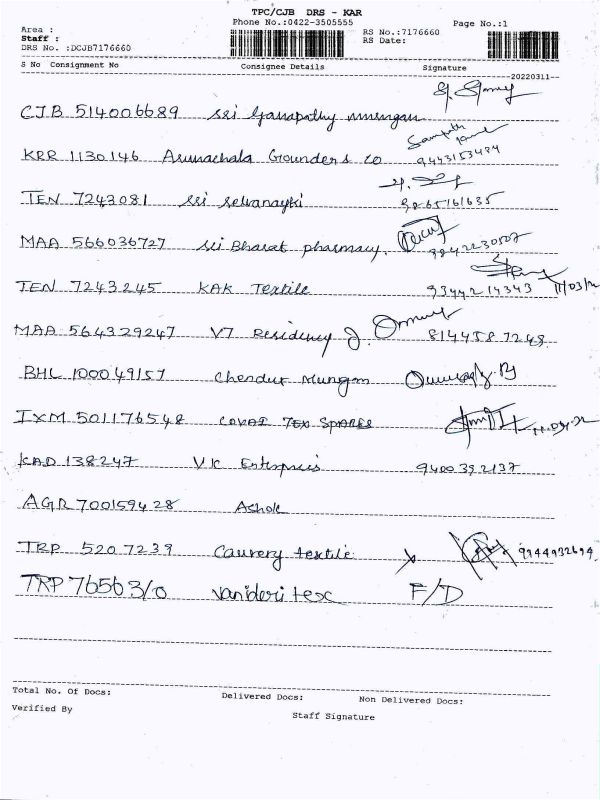 TPC/CJB DRS - KAR
Phone No.:0422-3505555 Page No.:1
Area :
Staff : RS No.:7176660
DRS No. :DCJB7176660 RS Date:
S No Consignment No Consignee Details Signature
20220311--
CJB 514006689 sri Ganapathy murugan
KRR 1130146 Arunachala Gounder & co 9443153484
TEN 7243081 sri selvanayki 9865161635
MAA 566036727 sri Bharat pharmacy. 9842230507
TEN 7243245 KAK Textile 9344214343
MAA 564329247 VJ Residency 8144587248
BHL 100049157 Chendur Murugan
IXM 501176548 COVAI TEX SPARES
KAD 138247 VK Enterprises 9400392137
AGR 700159428 Ashok
TRP 5207239 Cauvery textile 9944932694
TRP 7656310 Vanideri tex F/D
Total No. Of Docs: Delivered Docs: Non Delivered Docs:
Verified By Staff Signature